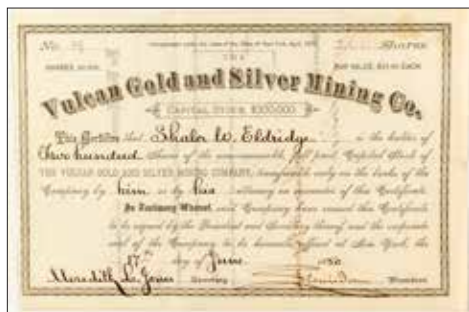 No.
Shares
THE
Vulcan Gold and Silver Mining Co.
CAPITAL STOCK $300,000
This Certifies that Shaler W. Eldridge is the holder of
Two hundred Shares of the Capital Stock of
THE VULCAN GOLD AND SILVER MINING COMPANY, transferable only on the books of the
Company by him or by his Attorney on surrender of this Certificate.
In Testimony Whereof, said Company have caused this Certificate
to be signed by the President and Secretary thereof and the corporate
seal of the Company to be hereunto affixed at New York, the
17th day of June 1880
Meredith L. Jones Secretary President